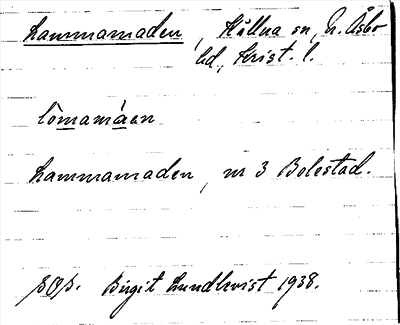 Lammamaden, Hållna sn, N. Åsbo
hd, Krist. l.
lômamáen
Lammamaden, nr 3 Bolestad.
Birgit Lundkvist 1938.